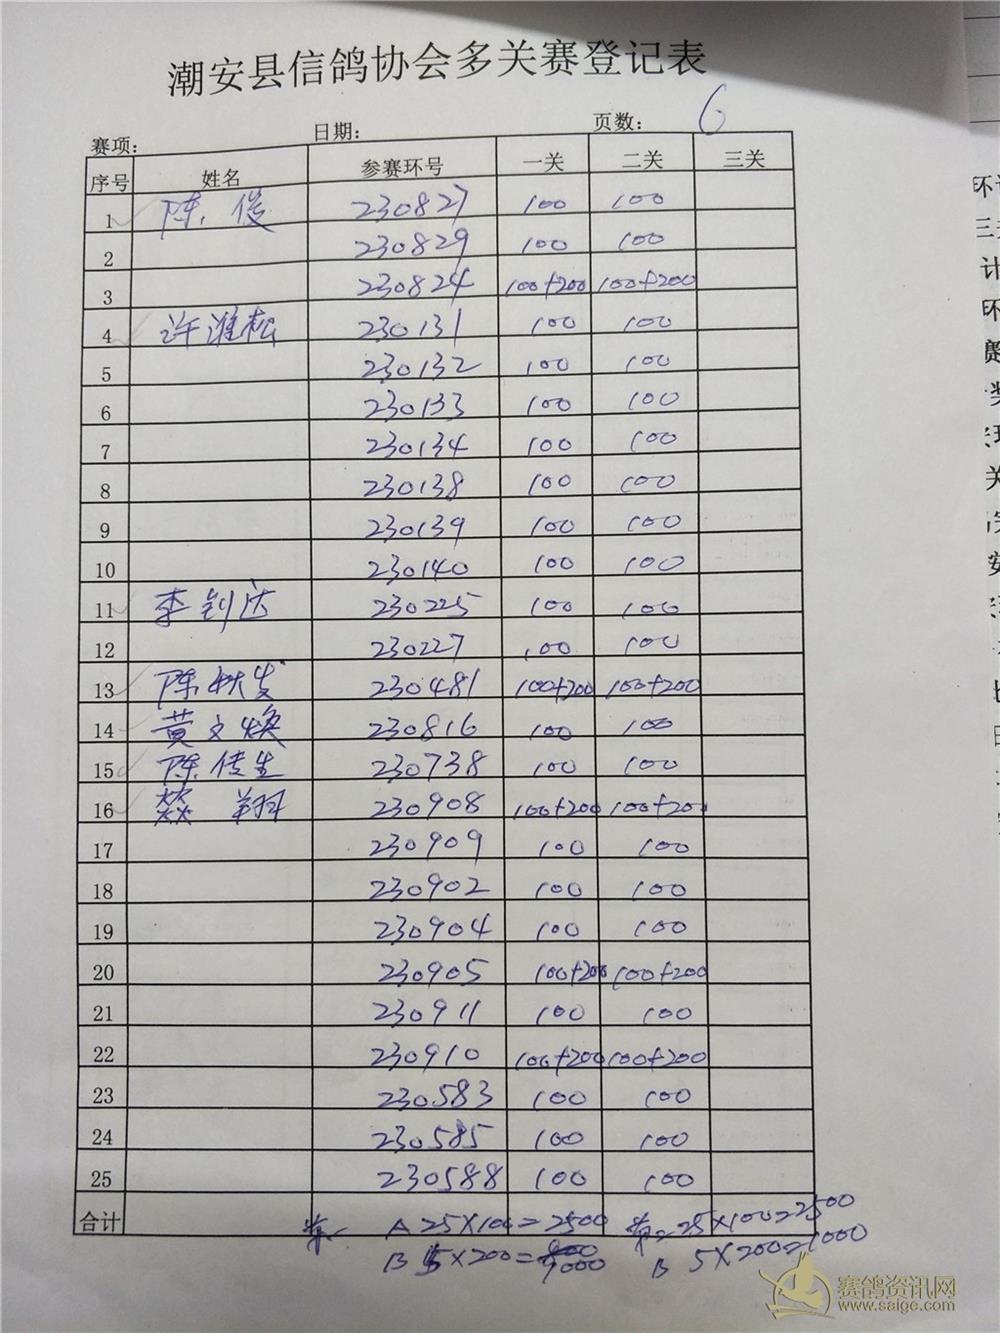 潮安县信鸽协会多关赛登记表
赛项: 日期: 页数: 6
序号 姓名 参赛环号 一关 二关 三关
1 陈俊 230827 100 100
2 230829 100 100
3 230824 100+200 100+200
4 许潍松 230131 100 100
5 230132 100 100
6 230133 100 100
7 230134 100 100
8 230138 100 100
9 230139 100 100
10 230140 100 100
11 李钊达 230225 100 100
12 230227 100 100
13 陈 230481 100+200 100+200
14 黄文焕 230816 100 100
15 陈传生 230738 100 100
16 燚翔 230908 100+200 100+200
17 230909 100 100
18 230902 100 100
19 230904 100 100
20 230905 100+200 100+200
21 230911 100 100
22 230910 100+200 100+200
23 230583 100 100
24 230585 100 100
25 230588 100 100
合计 第一 A 25×100=2500 第二 25×100=2500
B 5×200=1000 B 5×200=1000
赛鸽资讯网
www.saige.com
环
三
计
环
赛
奖
关
安